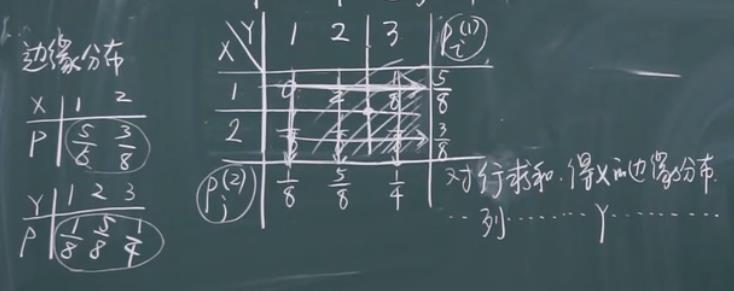 边缘分布
X 1 2
P 5/8 3/8
Y 1 2 3
P 1/8 5/8 1/4
X Y 1 2 3 P_i^(1)
1 0 5/8
2 3/8
P_j^(2) 1/8 5/8 1/4
对行求和.得X的边缘分布.
…列……Y………